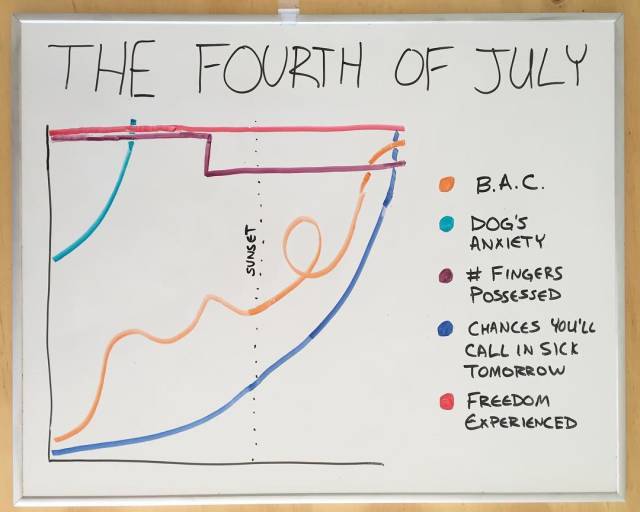 THE FOURTH OF JULY
SUNSET
B.A.C.
DOG'S
ANXIETY
# FINGERS
POSSESSED
CHANCES YOU'LL
CALL IN SICK
TOMORROW
FREEDOM
EXPERIENCED